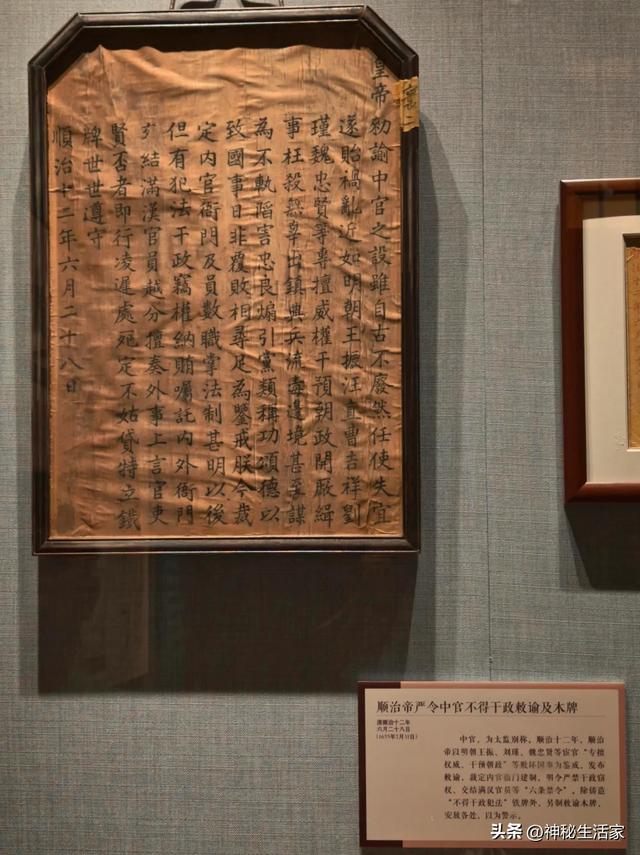 皇帝勅諭中官之設雖自古不廢然任使失宜
遂貽禍亂近如明朝王振汪直曹吉祥劉
瑾魏忠賢等專擅威權干預朝政開厰緝
事枉殺無辜出鎮典兵流毒邊境甚至謀
為不軌陷害忠良煽引黨類稱功頌德以
致國事日非覆敗相尋足為鑒戒朕今裁
定内官衙門及員數職掌法制甚明以後
但有犯法干政竊權納賄囑託内外衙門
交結滿漢官員越分擅奏外事上言官吏
賢否者即行凌遲處死定不姑貸特立鐵
牌世世遵守
順治十二年六月二十八日
顺治帝严令中官不得干政敕谕及木牌
清顺治十二年
六月二十八日
(1655年7月31日)
中官，为太监别称。顺治十二年，顺治
帝以明朝王振、刘瑾、魏忠贤等宦官“专擅
权威、干预朝政”等败坏国事为鉴戒，发布
敕谕，裁定内官衙门建制，明令严禁干政窃
权、交结满汉官员等“六条禁令”。除铸造
“不得干政犯法”铁牌外，另制敕谕木牌，
安放各处，以为警示。
头条 @神秘生活家